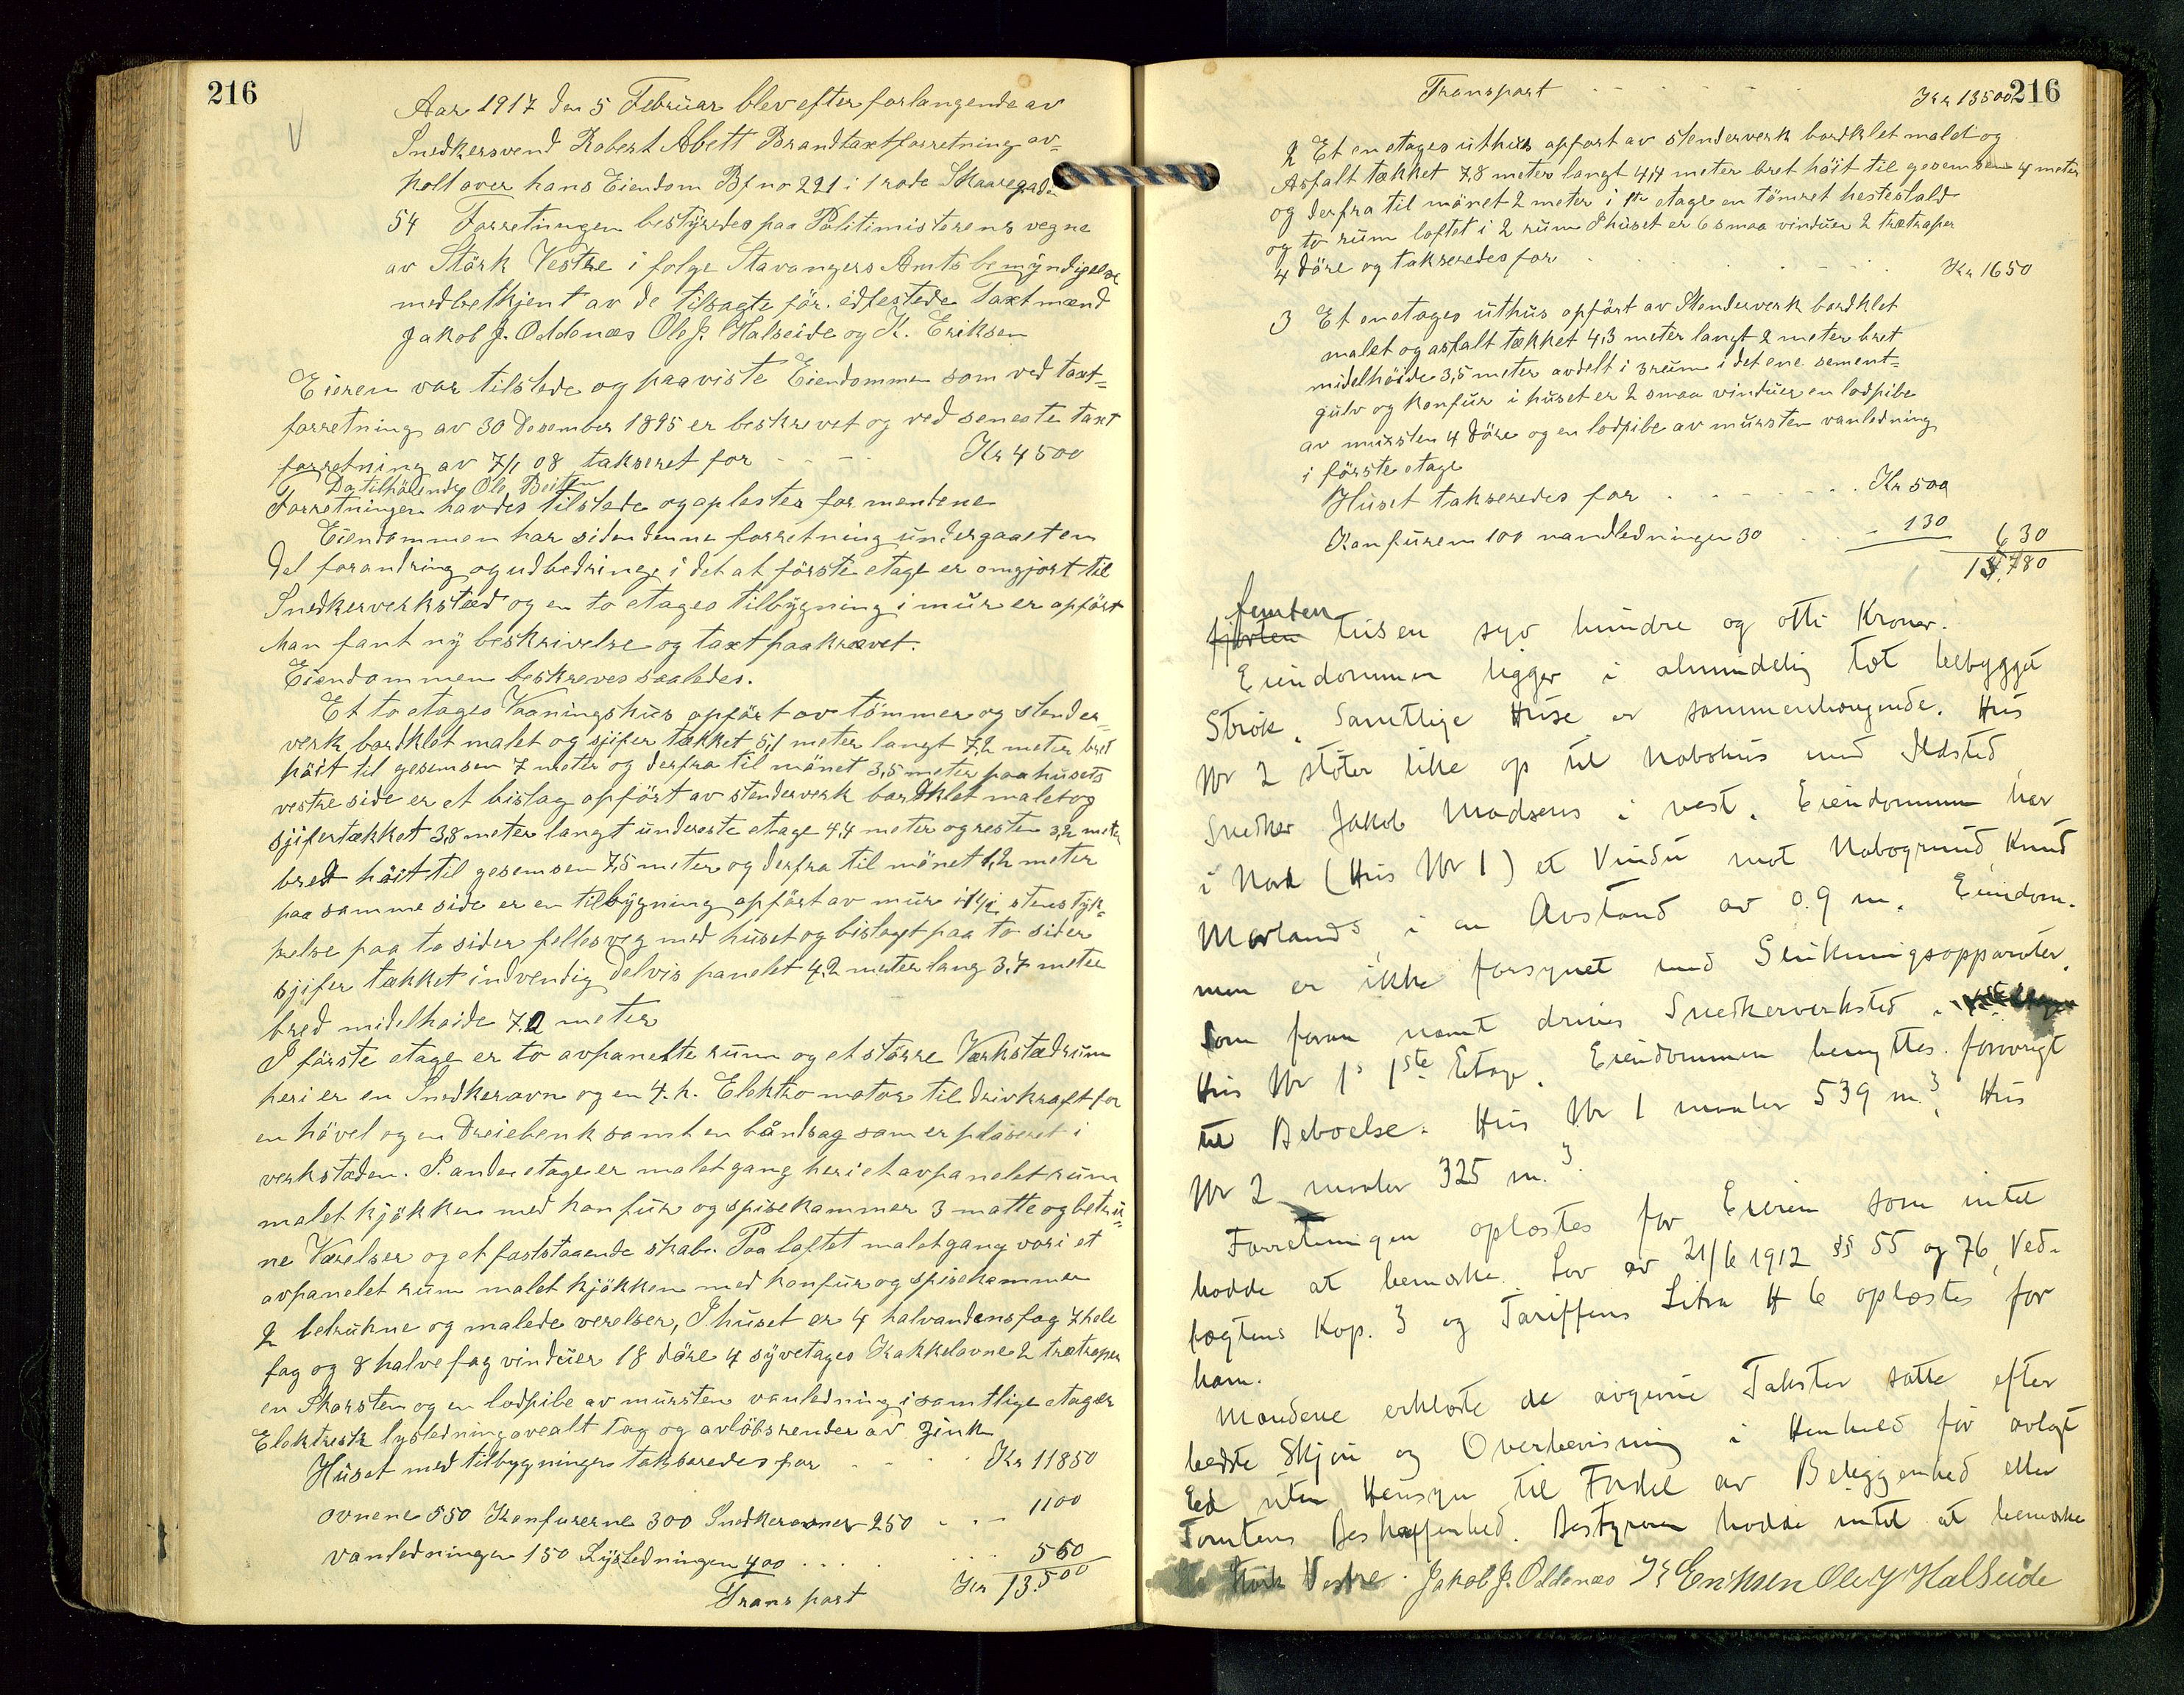 216
Aar 1917 den 5 Februar blev efter forlangende av
Snedkersvend Robert Abett Brandtaxtforretning av-
holt over hans Eiendom Bf no 221 i 1 rode Skaaregade
54 Forretningen bestyredes paa Politimisterens vegne
av Störk Vestre i folge Stavangers Amts bemyndigelse
med betkjent av de tilsagte för edfestede Taxtmænd
Jakob J. Oddenæs Ole J. Halseide og K. Eriksen
Eieren var tilstede og paaviste Eiendommen som ved taxt-
forretning av 30 Desember 1895 er beskrevet og ved seneste taxt
forretning av 7/1 08 takseret for - - - Kr 4500
Da tilhörende Ole
Forretningen havdes tilstede og oplestes for mendene
Eiendommen har siden denne forretning undergaaet en
del forandring og udbedringe i det at förste etage er omgjort til
Snedkerverksted og en to etages tilbygning i mur er opfört
Man fant ny beskrivelse og taxt paakrævet.
Eiendommen beskreves saaledes.
Et to etages Vaaningshus opfört av tömmer og stender-
verk bordklet malet og sjifer tækket 5,1 meter langt 7,2 meter bret
höit til gesemsen 7 meter og derfra til mönet 3,5 meter paa husets
vestre side er et bislag opfört av stenderverk bordklet malet og
sjifertækket 3,8 meter langt underste etage 4,4 meter og resten 3,2 meter
bred höit til gesemsen 7,5 meter og derfra til mönet 1,2 meter
paa samme side er en tilbygning opfört av mur i 1/2 stens tyk-
kelse paa to sider felles veg med huset og bislaget paa to sider
sjifer tækket indvendig delvis panelet 4,2 meter lang 3,7 meter
bred midelhöide 7,0 meter
I förste etage er to avpanelte rum og et större Værkstædrum
heri er en Snedkerovn og en 4. h. Elektromotor til drivkraft for
en hövel og en dreiebenk samt en båndsag som er plaseret i
verkstæden. I anden etage er malet gang heri et avpanelet rum
malet kjökken med komfur og spisekammer 3 matte og betruk-
ne Værelser og et faststaaende skab. Paa loftet malet gang vori et
avpanelet rum malet kjökken med komfur og spisekammer
2 betrukne og malede verelser, I huset er 4 halvandensfag 7 hele
fag og 8 halve fag vinduer 18 döre 4 syvetages Kakkelovne 2 trætraper
en Skorsten og en lodpibe av mursten vanledning i samtlige etager
Elektresk lysledning ovealt Tag og avlöbsrender av Zink
Huset med tilbygninger takseredes for - - - Kr 11850
ovnene 550 Komfurerne 300 Snedkerovner 250 - - - 1100
vanledningen 150 Lysledningen 400 . . . . 550
Transport Kr 13.500
216
Transport - - - - - Kr 13500
2 Et en etages uthus opfört av stenderverk bordklet malet og
Asfalt tækket 7,8 meter langt 4,4 meter bret höit til gesemsen 4 meter
og derfra til mönet 2 meter i 1ste etage en tömret hestestald
og to rum loftet i 2 rum I huset er 6 smaa vinduer 2 trætraper
4 döre og takseredes for - - - - Kr 1650
3 Et en etages uthus opfört av Stenderverk bordklet
malet og asfalt tækket 4,3 meter langt 2 meter bret
midelhöide 3,5 meter avdelt i 3 rum i det ene sement-
gulv og Komfur i huset er 2 smaa vinduer en lodpibe
av mursten 4 döre og en lodpibe av mursten vanledning
i förste etage
Huset takseredes for - - - - Kr 500
Komfuren 100 vandledningen 30 - - - 130 630
15,780
femten
fjorten tusen syv hundre og otti Kroner.
Eiendommen ligger i almindelig tæt bebygget
Strøk. Samtlige Huse er sammenhængende. Hus
Nr 2 støter like op til Nabohus med Ildsted
Snedker Jakob Madsens i vest. Eiendommen har
i Nord (Hus Nr 1) et Vindu mot Nabogrund Knud
Mørlands i en Avstand av 0.9 m. Eiendom-
men er ikke forsynet med Slukningsapparater.
Som foran nævnt drives Snedkerverksted i
Hus Nr 1s 1ste Etage. Eiendommen benyttes forøvrigt
til Beboelse. Hus Nr 1 maaler 539 m.3. Hus
Nr 2 maaler 325 m.3.
Forretningen oplæstes for Eieren som intet
hadde at bemærke. Lov av 21/6 1912 §§ 55 og 76, Ved-
tægtens Kap. 3 og Tariffens Litra H 6 oplæstes for
ham.
Mændene erklærte de avgivne Takster satte efter
bedste Skjøn og Overbevisning i Henhold før avlagt
Ed uten Hensyn til Fordel av Beliggenhed eller
Tomtens Beskaffenhed. Bestyreren hadde intet at bemærke
Störk Vestre. Jakob J. Oddenæs K Eriksen Ole J Halseide